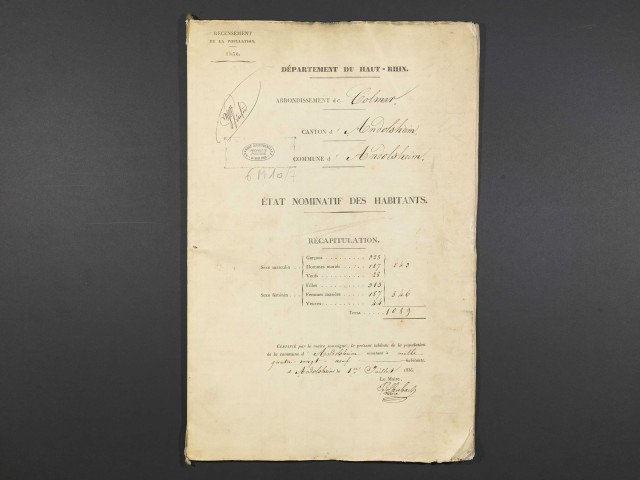 RECENSEMENT
DE LA POPULATION.
1836.
DÉPARTEMENT DU HAUT-RHIN.
ARRONDISSEMENT de Colmar.
CANTON d' Andolsheim
COMMUNE d' Andolsheim.
6 M 10
ÉTAT NOMINATIF DES HABITANTS.
RÉCAPITULATION.
Sexe masculin
Garçons
Hommes mariés 187
Veufs 28
543
Sexe féminin
Filles
Femmes mariées 187
Veuves 44
546
Total 1089
Concerté par le maire soussigné, le présent tableau de la population
de la commune d' Andolsheim montant à mille
quatre vingt neuf habitants.
à Andolsheim le 1er Juillet 1836.
Le Maire,